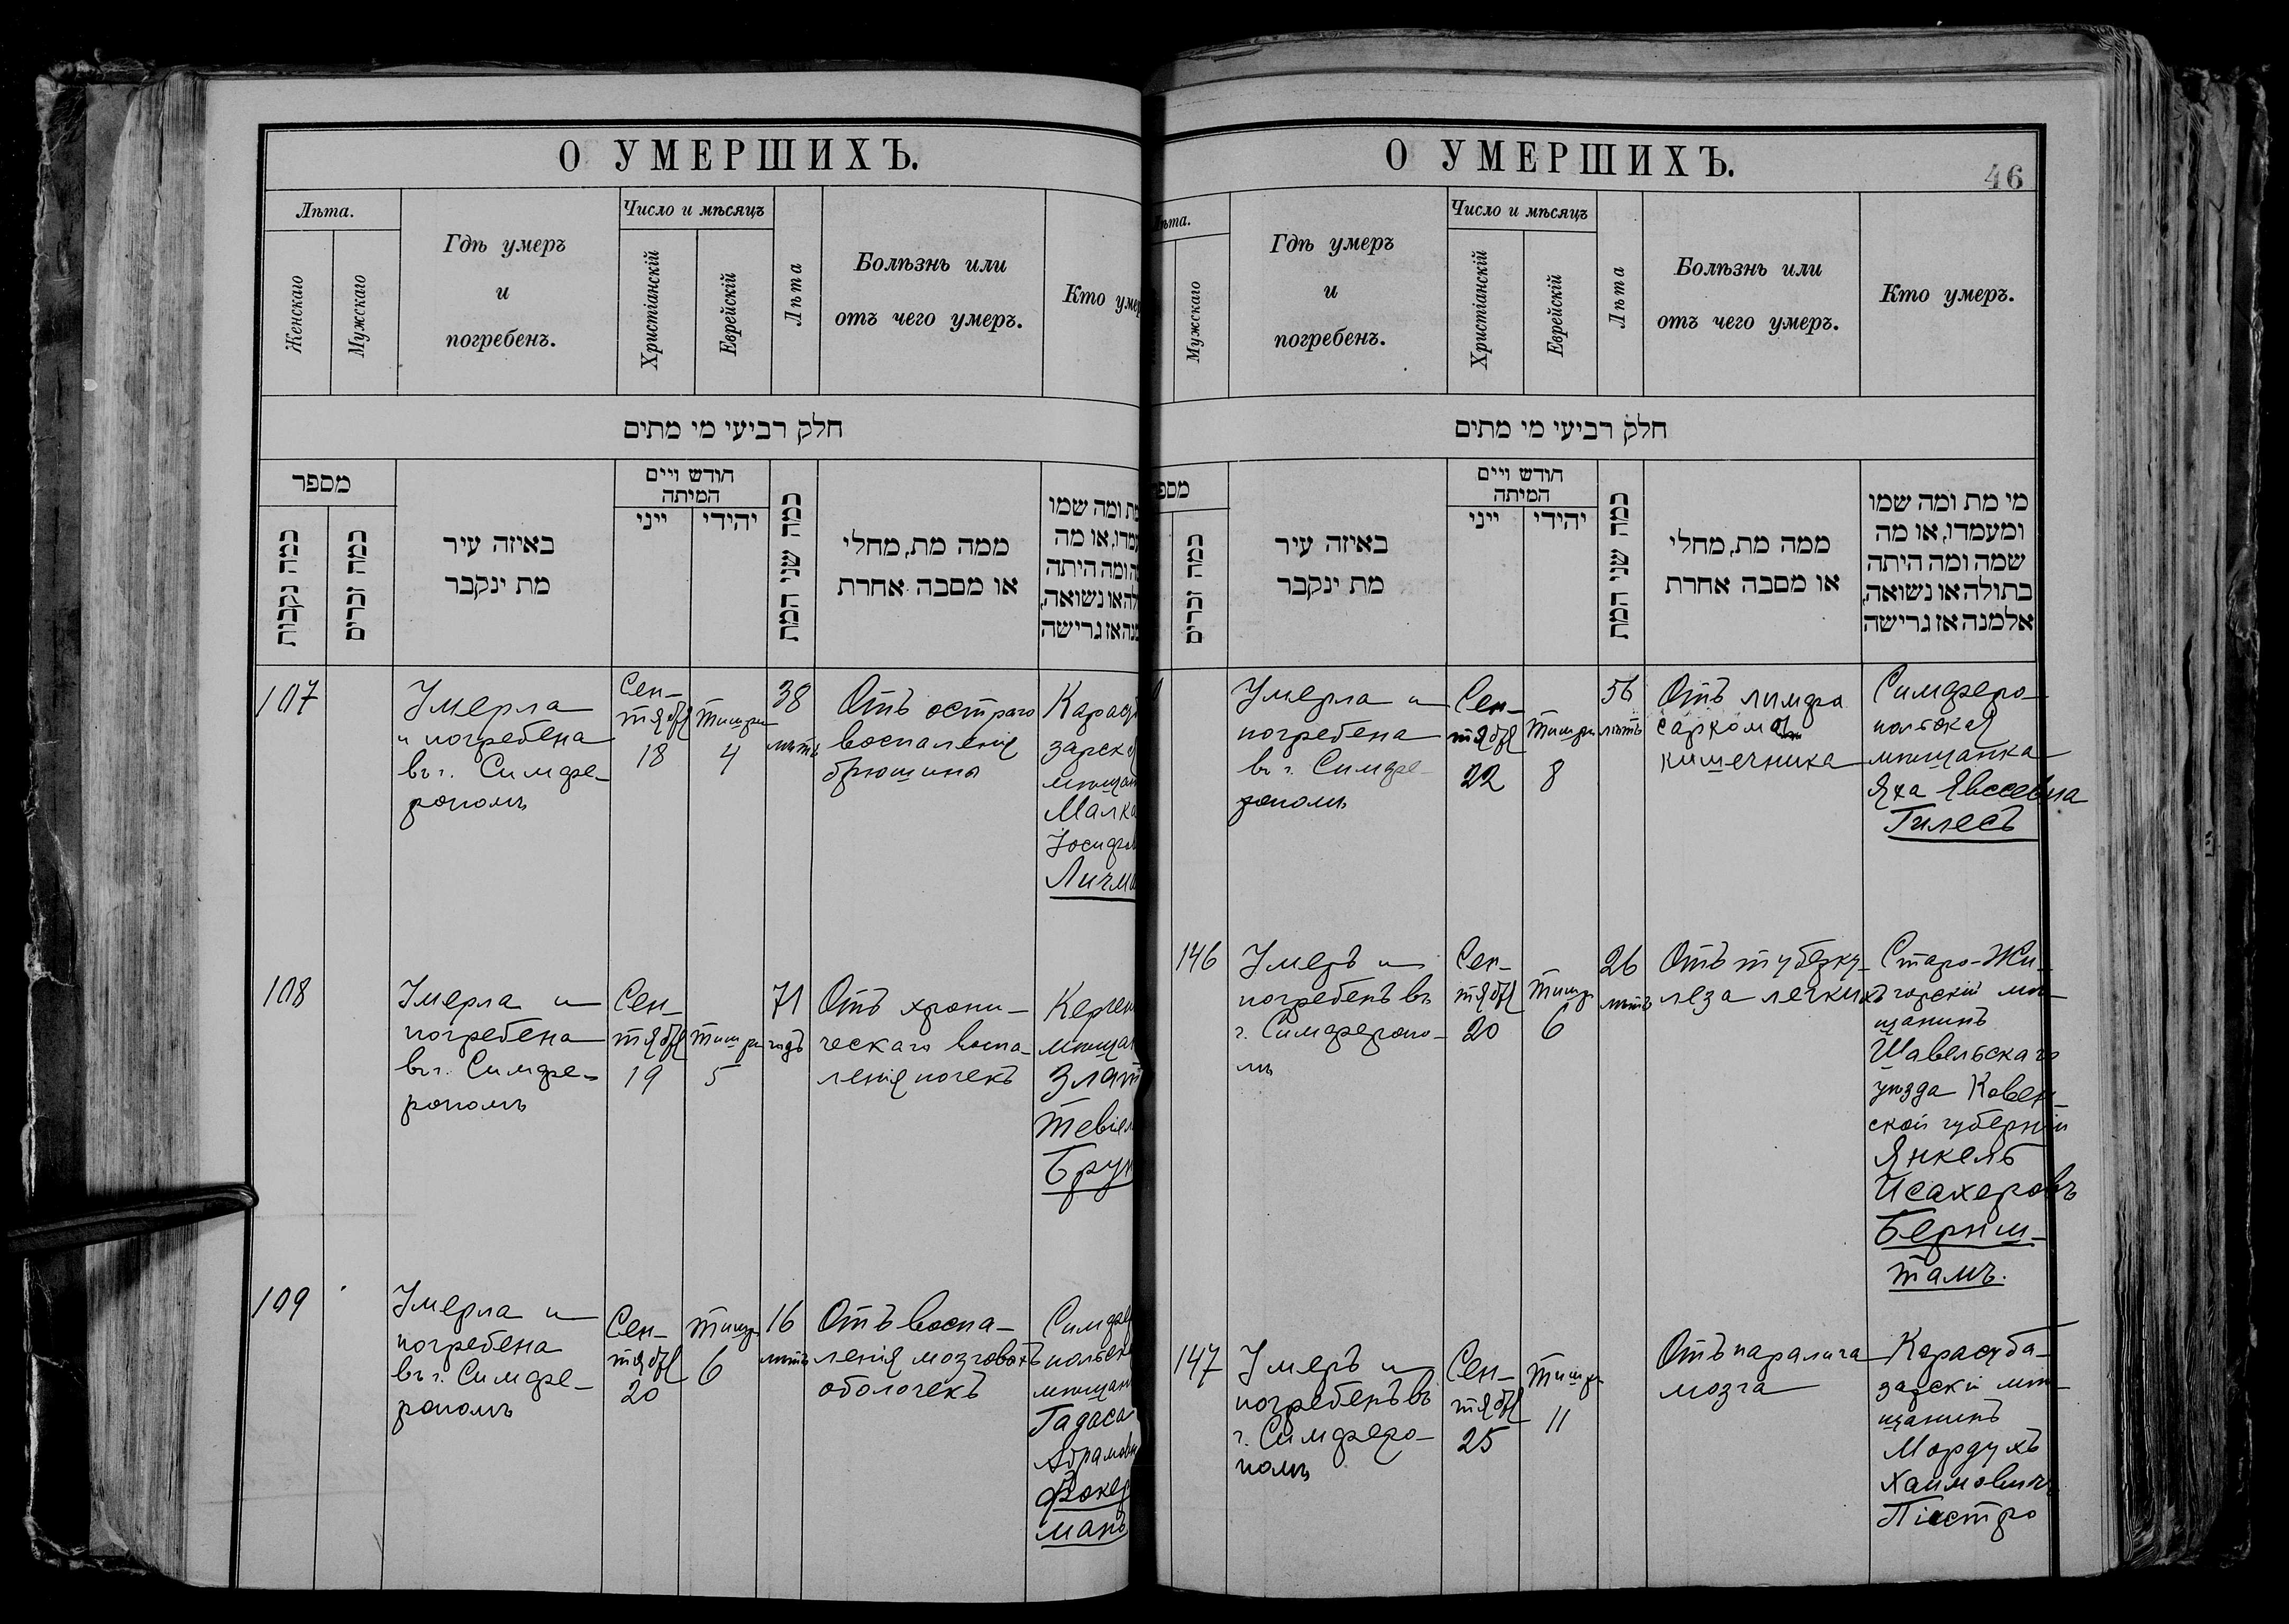 О УМЕРШИХЪ.
Лѣта.
Женскаго
Мужскаго
Гдѣ умеръ
и
погребенъ.
Число и мѣсяцъ
Христіанскій
Еврейскій
Лѣта
Болѣзнь или
отъ чего умеръ.
Кто умер
חלק רביעי מי מתים
מספר
כמה נקבות
כמה זכרים
באיזה עיר
מת ינקבר
חודש ויים
המיתה
ייני
יהידי
כמה שני המת
ממה מת, מחלי
או מסבה אחרת
מת ומה שמו
עמדו, או מה
ה ומה היתה
לה או נשואה,
מנה אז גרישה
107
Умерла
и погребена
въ г. Симфе-
рополѣ
Сен-
тября
18
Тишри
4
38
лѣтъ
Отъ остраго
воспаленія
брюшины
Карасу
зарска
мѣщан
Малка
Іосифов
Личма
108
Умерла и
погребена
въ г. Симфе-
рополѣ
Сен-
тября
19
Тишри
5
71
годъ
Отъ хрони-
ческаго воспа-
ленія почекъ
Керен
мѣщан
Злат
Тевіев
Брун
109
Умерла и
погребена
въ г. Симфе-
рополѣ
Сен-
тября
20
Тишри
6
16
лѣтъ
Отъ воспа-
ленія мозговыхъ
оболочекъ
Симфер
польск
мѣщан
Гадаса
Абрамовн
Фокер
манъ
О УМЕРШИХЪ.
46
ѣта.
Мужскаго
Гдѣ умеръ
и
погребенъ.
Число и мѣсяцъ
Христіанскій
Еврейскій
Лѣта
Болѣзнь или
отъ чего умеръ.
Кто умеръ.
חלק רביעי מי מתים
מספ
כמה זכרים
באיזה עיר
מת ינקבר
חודש ויים
המיתה
ייני
יהידי
כמה שני המת
ממה מת, מחלי
או מסבה אחרת
מי מת ומה שמו
ומעמדו, או מה
שמה ומה היתה
בתולה או נשואה,
אלמנה אז גרישה
Умерла и
погребена
въ г. Симфе-
рополѣ
Сен-
тября
22
Тишри
8
56
лѣтъ
Отъ лимфо
саркомы
кишечника
Симферо-
польская
мѣщанка
Яха Явсеевна
Гилесъ
146
Умеръ и
погребенъ въ
г. Симферопо-
лѣ
Сен-
тября
20
Тишр
6
26
лѣтъ
Отъ туберку-
леза легкихъ
Старо-Жи-
горскій мѣ-
щанинъ
Шавельскаго
уѣзда Ковен-
ской губерніи
Янкель
Исахеровъ
Бернш-
тамъ.
147
Умеръ и
погребенъ въ
г. Симферо-
полѣ
Сен-
тября
25
Тишри
11
Отъ паралича
мозга
Карасуба-
зарскій мѣ-
щанинъ
Мордухъ
Хаимовичъ
Піастро